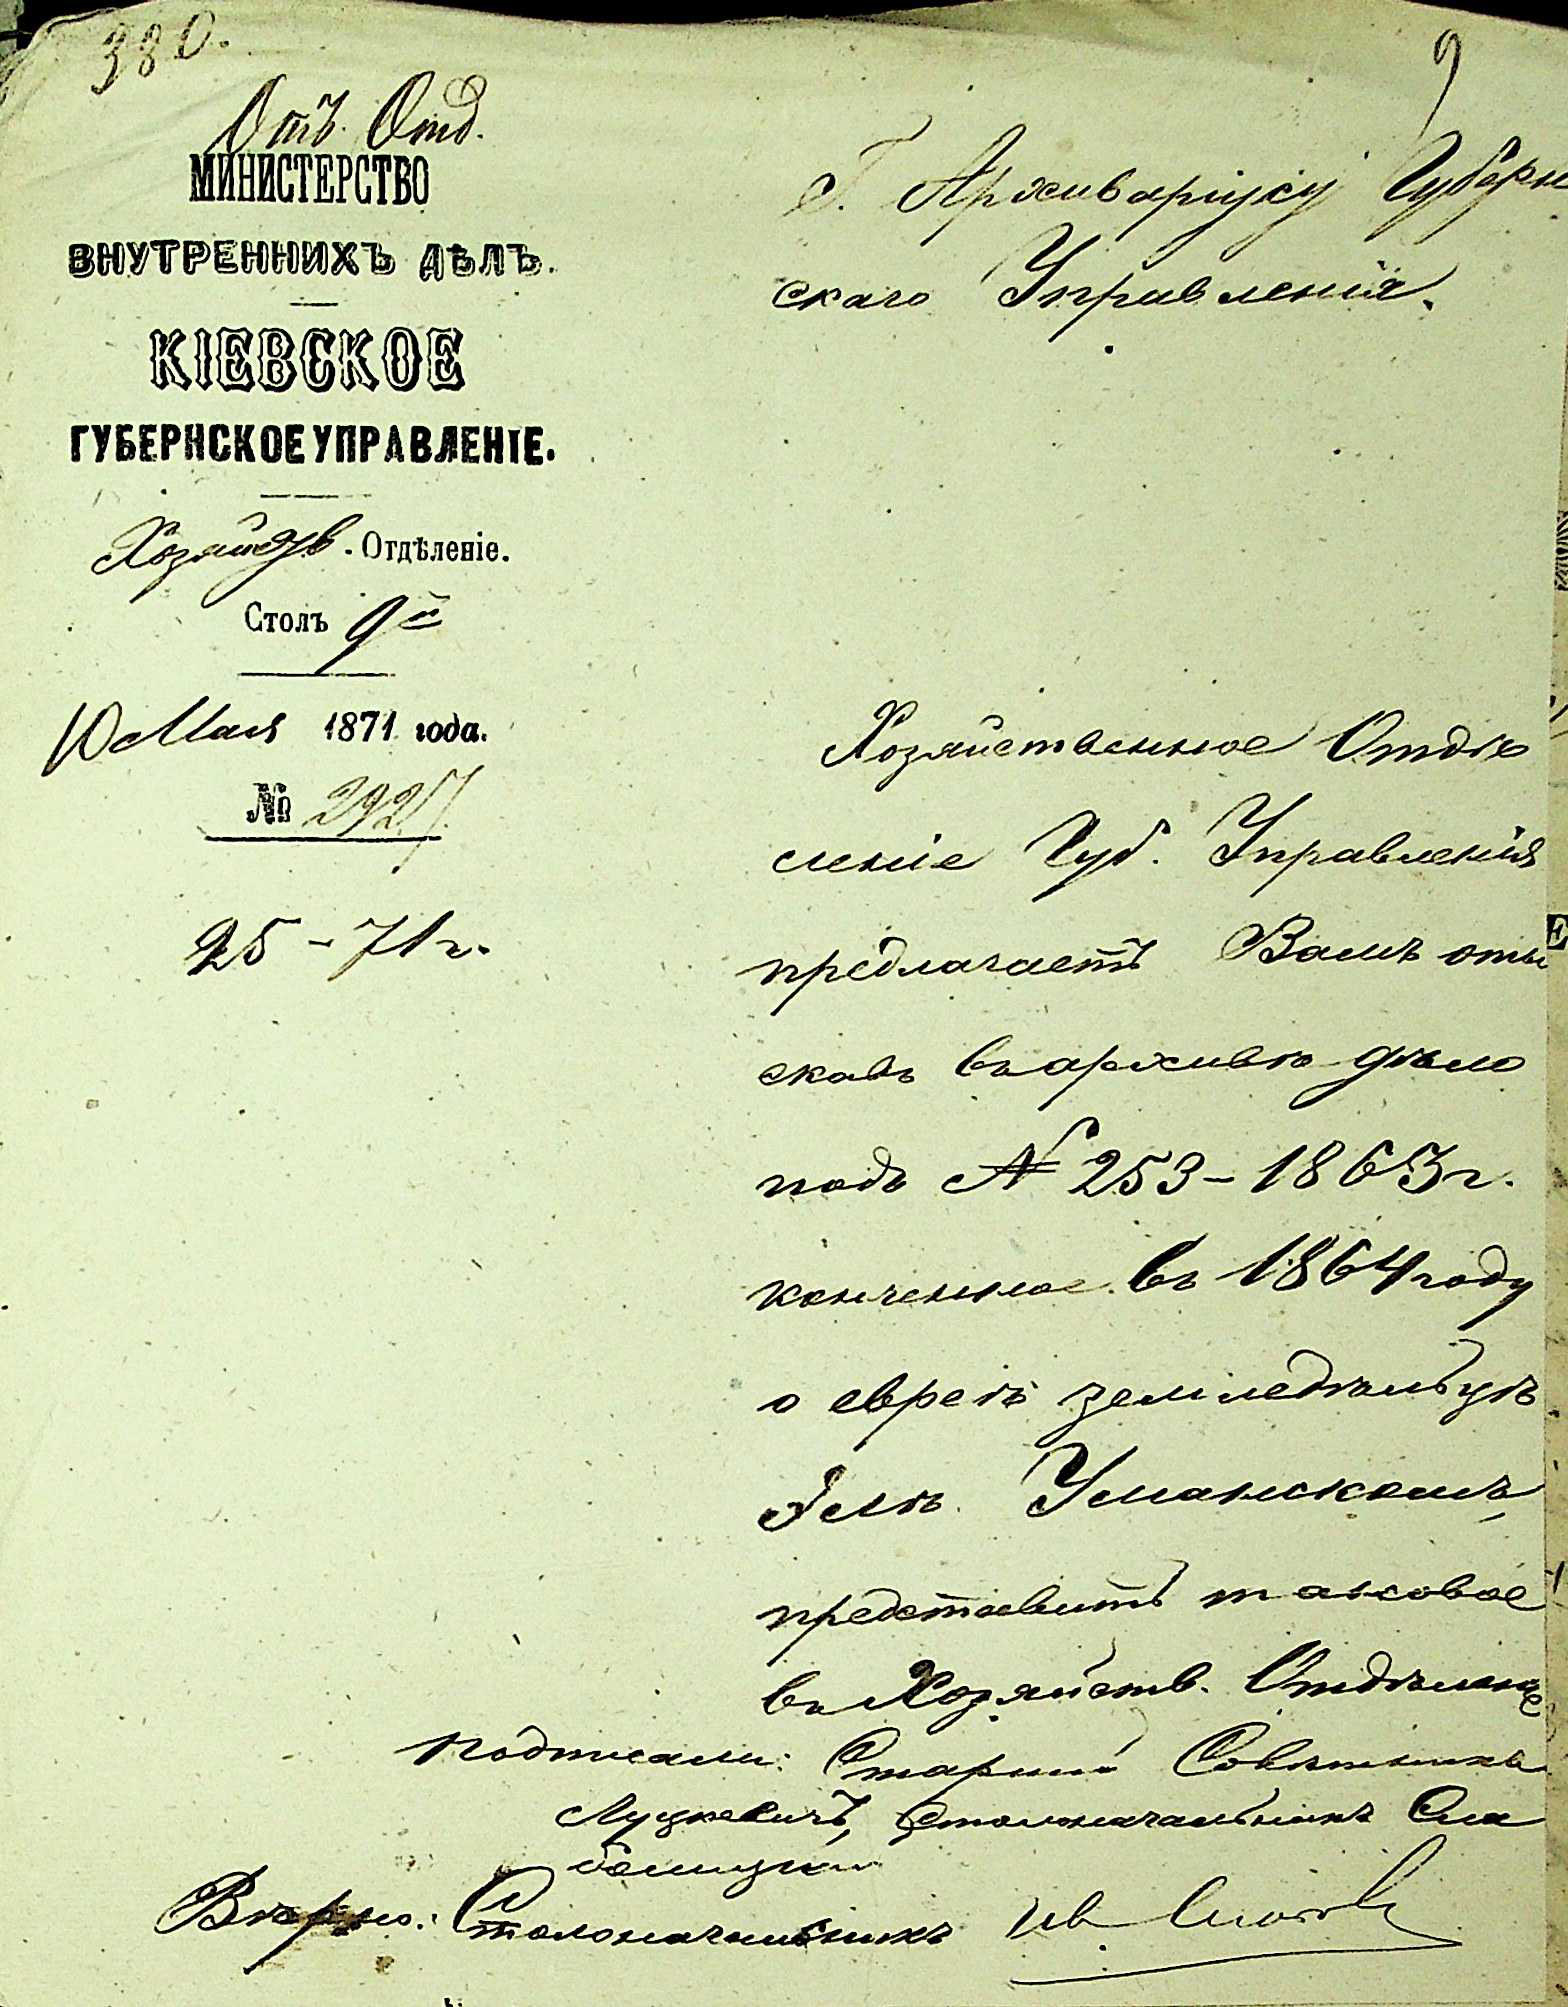 380.
9
Отъ. Отд.
МИНИСТЕРСТВО
ВНУТРЕННИХЪ ДѢЛЪ.
КІЕВСКОЕ
ГУБЕРНСКОЕ УПРАВЛЕНІЕ.
Хозяйств. Отдѣленіе.
Столъ 9й
10 Мая 1871 года.
№ 2927
25 - 71 г.
Г. Архиваріусу Губерн
скаго Управленія.
Хозяйственное Отдѣ
леніе Губ. Управленія
предлагаетъ Вамъ оты
скавъ въ архивѣ дѣло
подъ № 253 - 1863 г.
конченное въ 1864 году
о евреѣ земледѣльцѣ
Уманскомъ,
представить таковое
въ Хозяйств. Отдѣленіе
Подписали: Старшій Совѣтникъ
Луцкевичъ, Столоначальникъ Сла
Вѣрно: Столоначальникъ